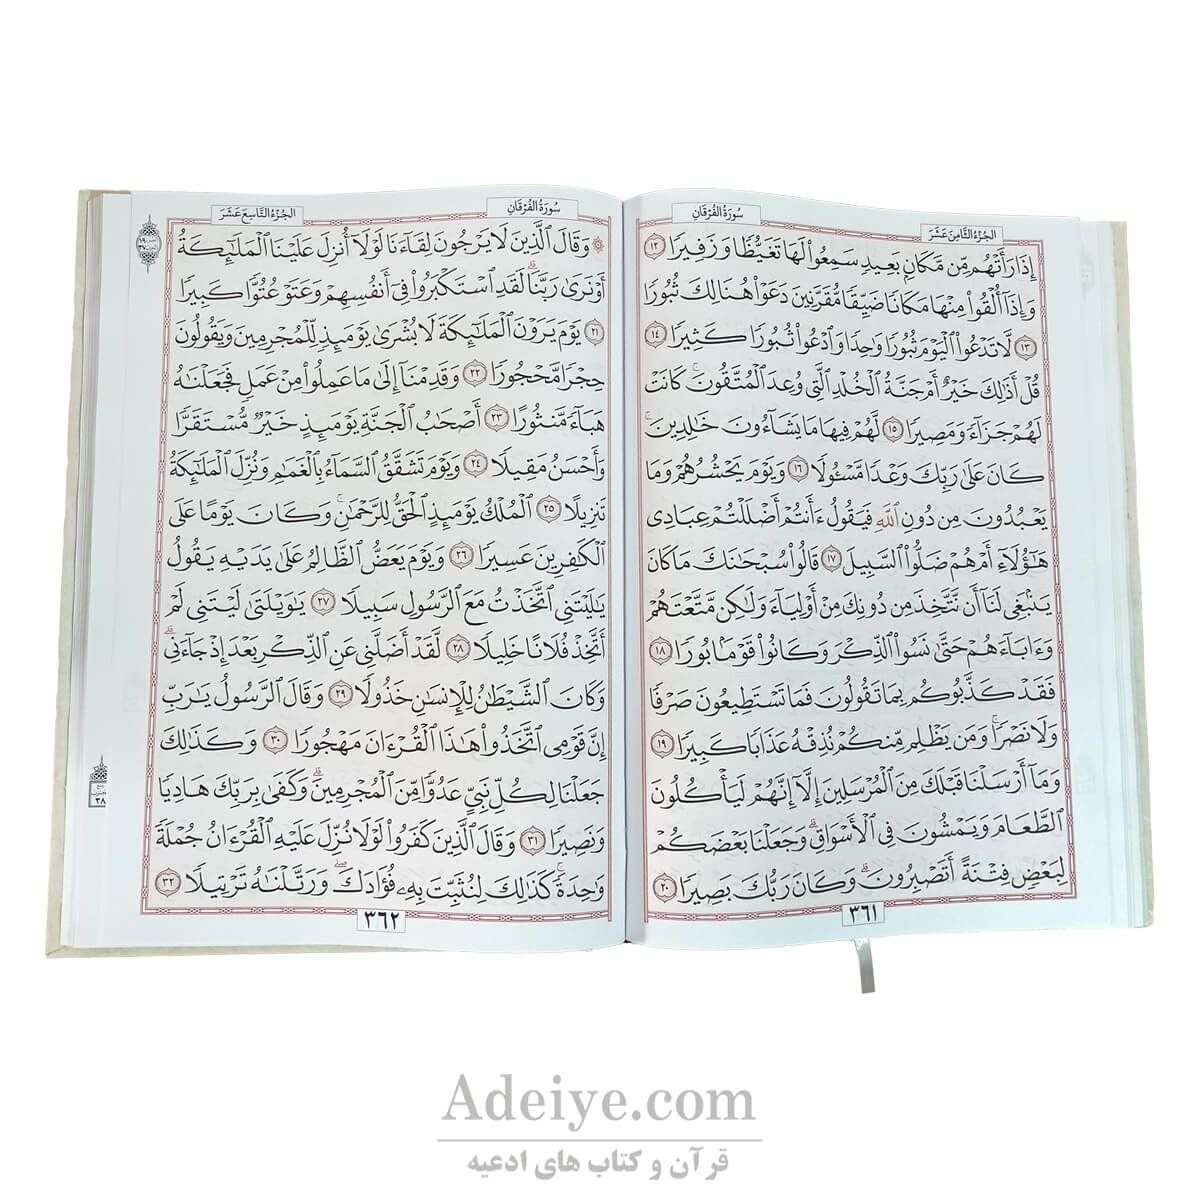 الجُزْءُ الثَّامِنَ عَشَرَ
سُورَةُ الفُرْقَانِ
إِذَا رَأَتْهُم مِّن مَّكَانٍ بَعِيدٍ سَمِعُوا۟ لَهَا تَغَيُّظًا وَزَفِيرًا ١٢
وَإِذَآ أُلْقُوا۟ مِنْهَا مَكَانًا ضَيِّقًا مُّقَرَّنِينَ دَعَوْا۟ هُنَالِكَ ثُبُورًا
١٣ لَّا تَدْعُوا۟ ٱلْيَوْمَ ثُبُورًا وَٰحِدًا وَٱدْعُوا۟ ثُبُورًا كَثِيرًا ١٤
قُلْ أَذَٰلِكَ خَيْرٌ أَمْ جَنَّةُ ٱلْخُلْدِ ٱلَّتِى وُعِدَ ٱلْمُتَّقُونَ ۚ كَانَتْ
لَهُمْ جَزَآءً وَمَصِيرًا ١٥ لَّهُمْ فِيهَا مَا يَشَآءُونَ خَٰلِدِينَ ۚ
كَانَ عَلَىٰ رَبِّكَ وَعْدًا مَّسْـُٔولًا ١٦ وَيَوْمَ يَحْشُرُهُمْ وَمَا
يَعْبُدُونَ مِن دُونِ ٱللَّهِ فَيَقُولُ ءَأَنتُمْ أَضْلَلْتُمْ عِبَادِى
هَٰٓؤُلَآءِ أَمْ هُمْ ضَلُّوا۟ ٱلسَّبِيلَ ١٧ قَالُوا۟ سُبْحَٰنَكَ مَا كَانَ
يَنۢبَغِى لَنَآ أَن نَّتَّخِذَ مِن دُونِكَ مِنْ أَوْلِيَآءَ وَلَٰكِن مَّتَّعْتَهُمْ
وَءَابَآءَهُمْ حَتَّىٰ نَسُوا۟ ٱلذِّكْرَ وَكَانُوا۟ قَوْمًۢا بُورًا ١٨
فَقَدْ كَذَّبُوكُم بِمَا تَقُولُونَ فَمَا تَسْتَطِيعُونَ صَرْفًا
وَلَا نَصْرًا ۚ وَمَن يَظْلِم مِّنكُمْ نُذِقْهُ عَذَابًا كَبِيرًا ١٩
وَمَآ أَرْسَلْنَا قَبْلَكَ مِنَ ٱلْمُرْسَلِينَ إِلَّآ إِنَّهُمْ لَيَأْكُلُونَ
ٱلطَّعَامَ وَيَمْشُونَ فِى ٱلْأَسْوَاقِ ۗ وَجَعَلْنَا بَعْضَكُمْ
لِبَعْضٍ فِتْنَةً أَتَصْبِرُونَ ۗ وَكَانَ رَبُّكَ بَصِيرًا ٢٠
٣٦١
سُورَةُ الفُرْقَانِ
الجُزْءُ التَّاسِعَ عَشَرَ
۞ وَقَالَ ٱلَّذِينَ لَا يَرْجُونَ لِقَآءَنَا لَوْلَآ أُنزِلَ عَلَيْنَا ٱلْمَلَٰٓئِكَةُ
أَوْ نَرَىٰ رَبَّنَا ۗ لَقَدِ ٱسْتَكْبَرُوا۟ فِىٓ أَنفُسِهِمْ وَعَتَوْ عُتُوًّا كَبِيرًا
٢١ يَوْمَ يَرَوْنَ ٱلْمَلَٰٓئِكَةَ لَا بُشْرَىٰ يَوْمَئِذٍ لِّلْمُجْرِمِينَ وَيَقُولُونَ
حِجْرًا مَّحْجُورًا ٢٢ وَقَدِمْنَآ إِلَىٰ مَا عَمِلُوا۟ مِنْ عَمَلٍ فَجَعَلْنَٰهُ
هَبَآءً مَّنثُورًا ٢٣ أَصْحَٰبُ ٱلْجَنَّةِ يَوْمَئِذٍ خَيْرٌ مُّسْتَقَرًّا
وَأَحْسَنُ مَقِيلًا ٢٤ وَيَوْمَ تَشَقَّقُ ٱلسَّمَآءُ بِٱلْغَمَٰمِ وَنُزِّلَ ٱلْمَلَٰٓئِكَةُ
تَنزِيلًا ٢٥ ٱلْمُلْكُ يَوْمَئِذٍ ٱلْحَقُّ لِلرَّحْمَٰنِ ۚ وَكَانَ يَوْمًا عَلَى
ٱلْكَٰفِرِينَ عَسِيرًا ٢٦ وَيَوْمَ يَعَضُّ ٱلظَّالِمُ عَلَىٰ يَدَيْهِ يَقُولُ
يَٰلَيْتَنِى ٱتَّخَذْتُ مَعَ ٱلرَّسُولِ سَبِيلًا ٢٧ يَٰوَيْلَتَىٰ لَيْتَنِى لَمْ
أَتَّخِذْ فُلَانًا خَلِيلًا ٢٨ لَّقَدْ أَضَلَّنِى عَنِ ٱلذِّكْرِ بَعْدَ إِذْ جَآءَنِى ۗ
وَكَانَ ٱلشَّيْطَٰنُ لِلْإِنسَٰنِ خَذُولًا ٢٩ وَقَالَ ٱلرَّسُولُ يَٰرَبِّ
إِنَّ قَوْمِى ٱتَّخَذُوا۟ هَٰذَا ٱلْقُرْءَانَ مَهْجُورًا ٣٠ وَكَذَٰلِكَ
جَعَلْنَا لِكُلِّ نَبِىٍّ عَدُوًّا مِّنَ ٱلْمُجْرِمِينَ ۗ وَكَفَىٰ بِرَبِّكَ هَادِيًا
وَنَصِيرًا ٣١ وَقَالَ ٱلَّذِينَ كَفَرُوا۟ لَوْلَا نُزِّلَ عَلَيْهِ ٱلْقُرْءَانُ جُمْلَةً
وَٰحِدَةً ۚ كَذَٰلِكَ لِنُثَبِّتَ بِهِۦ فُؤَادَكَ ۖ وَرَتَّلْنَٰهُ تَرْتِيلًا ٣٢
٣٦٢
Adeiye.com
قرآن و کتاب های ادعیه